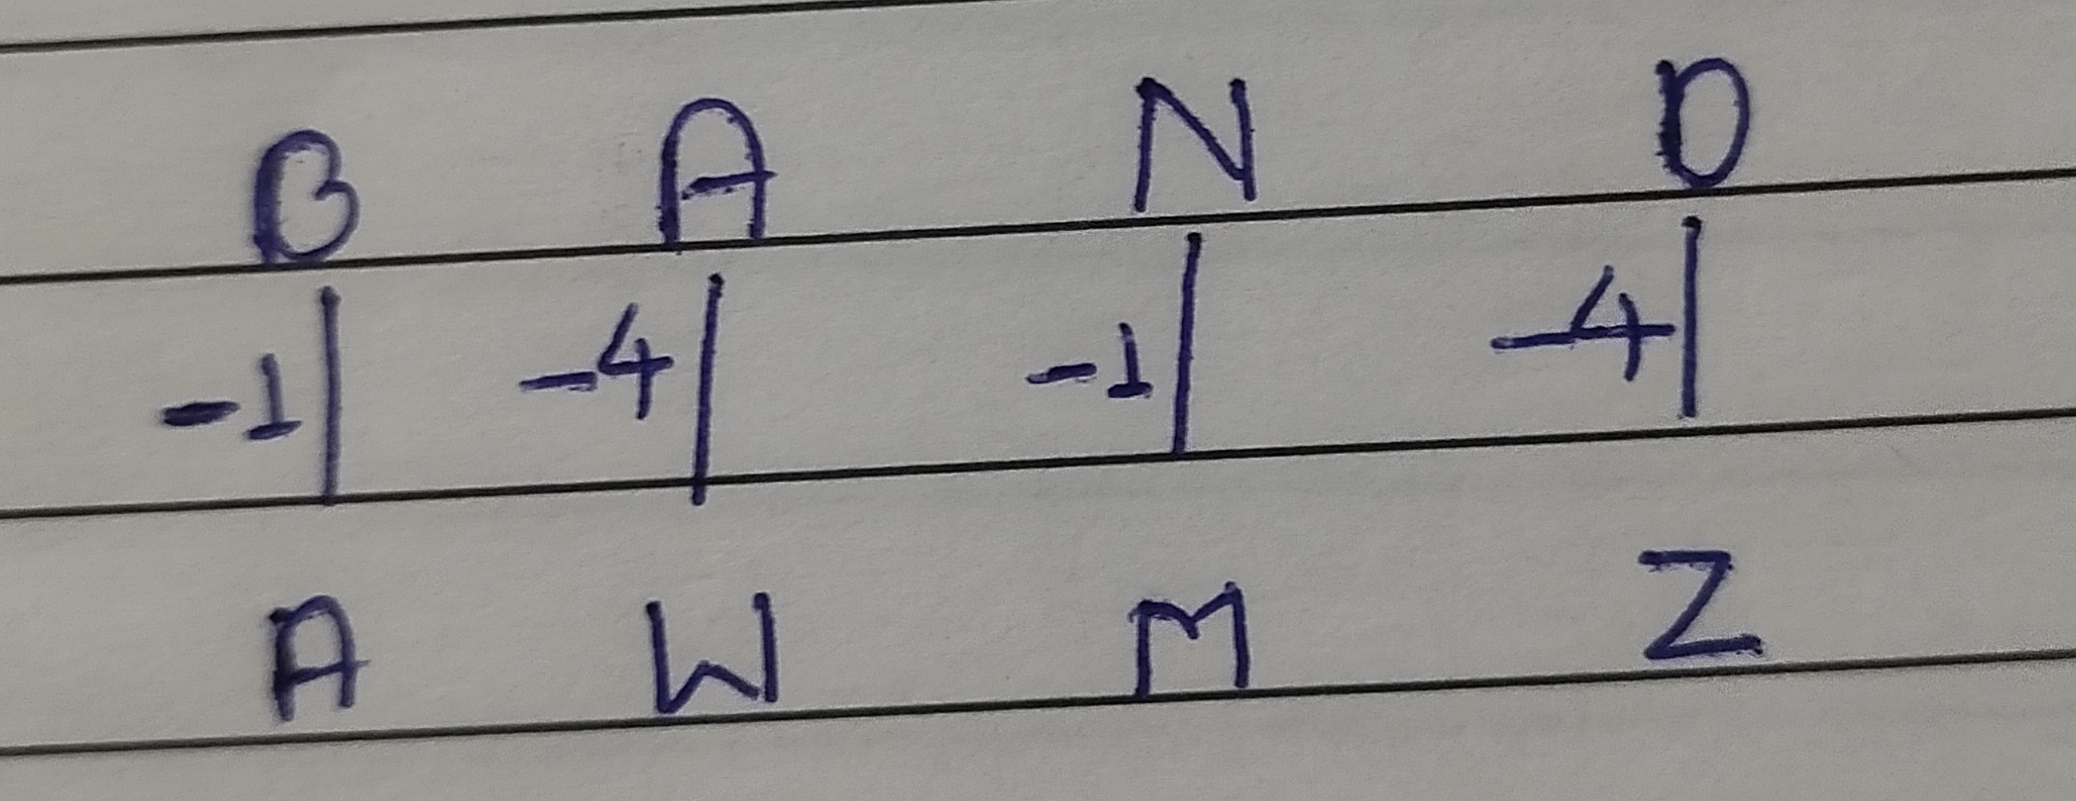 B A N D
-1| -4| -1| -4|
A W M Z